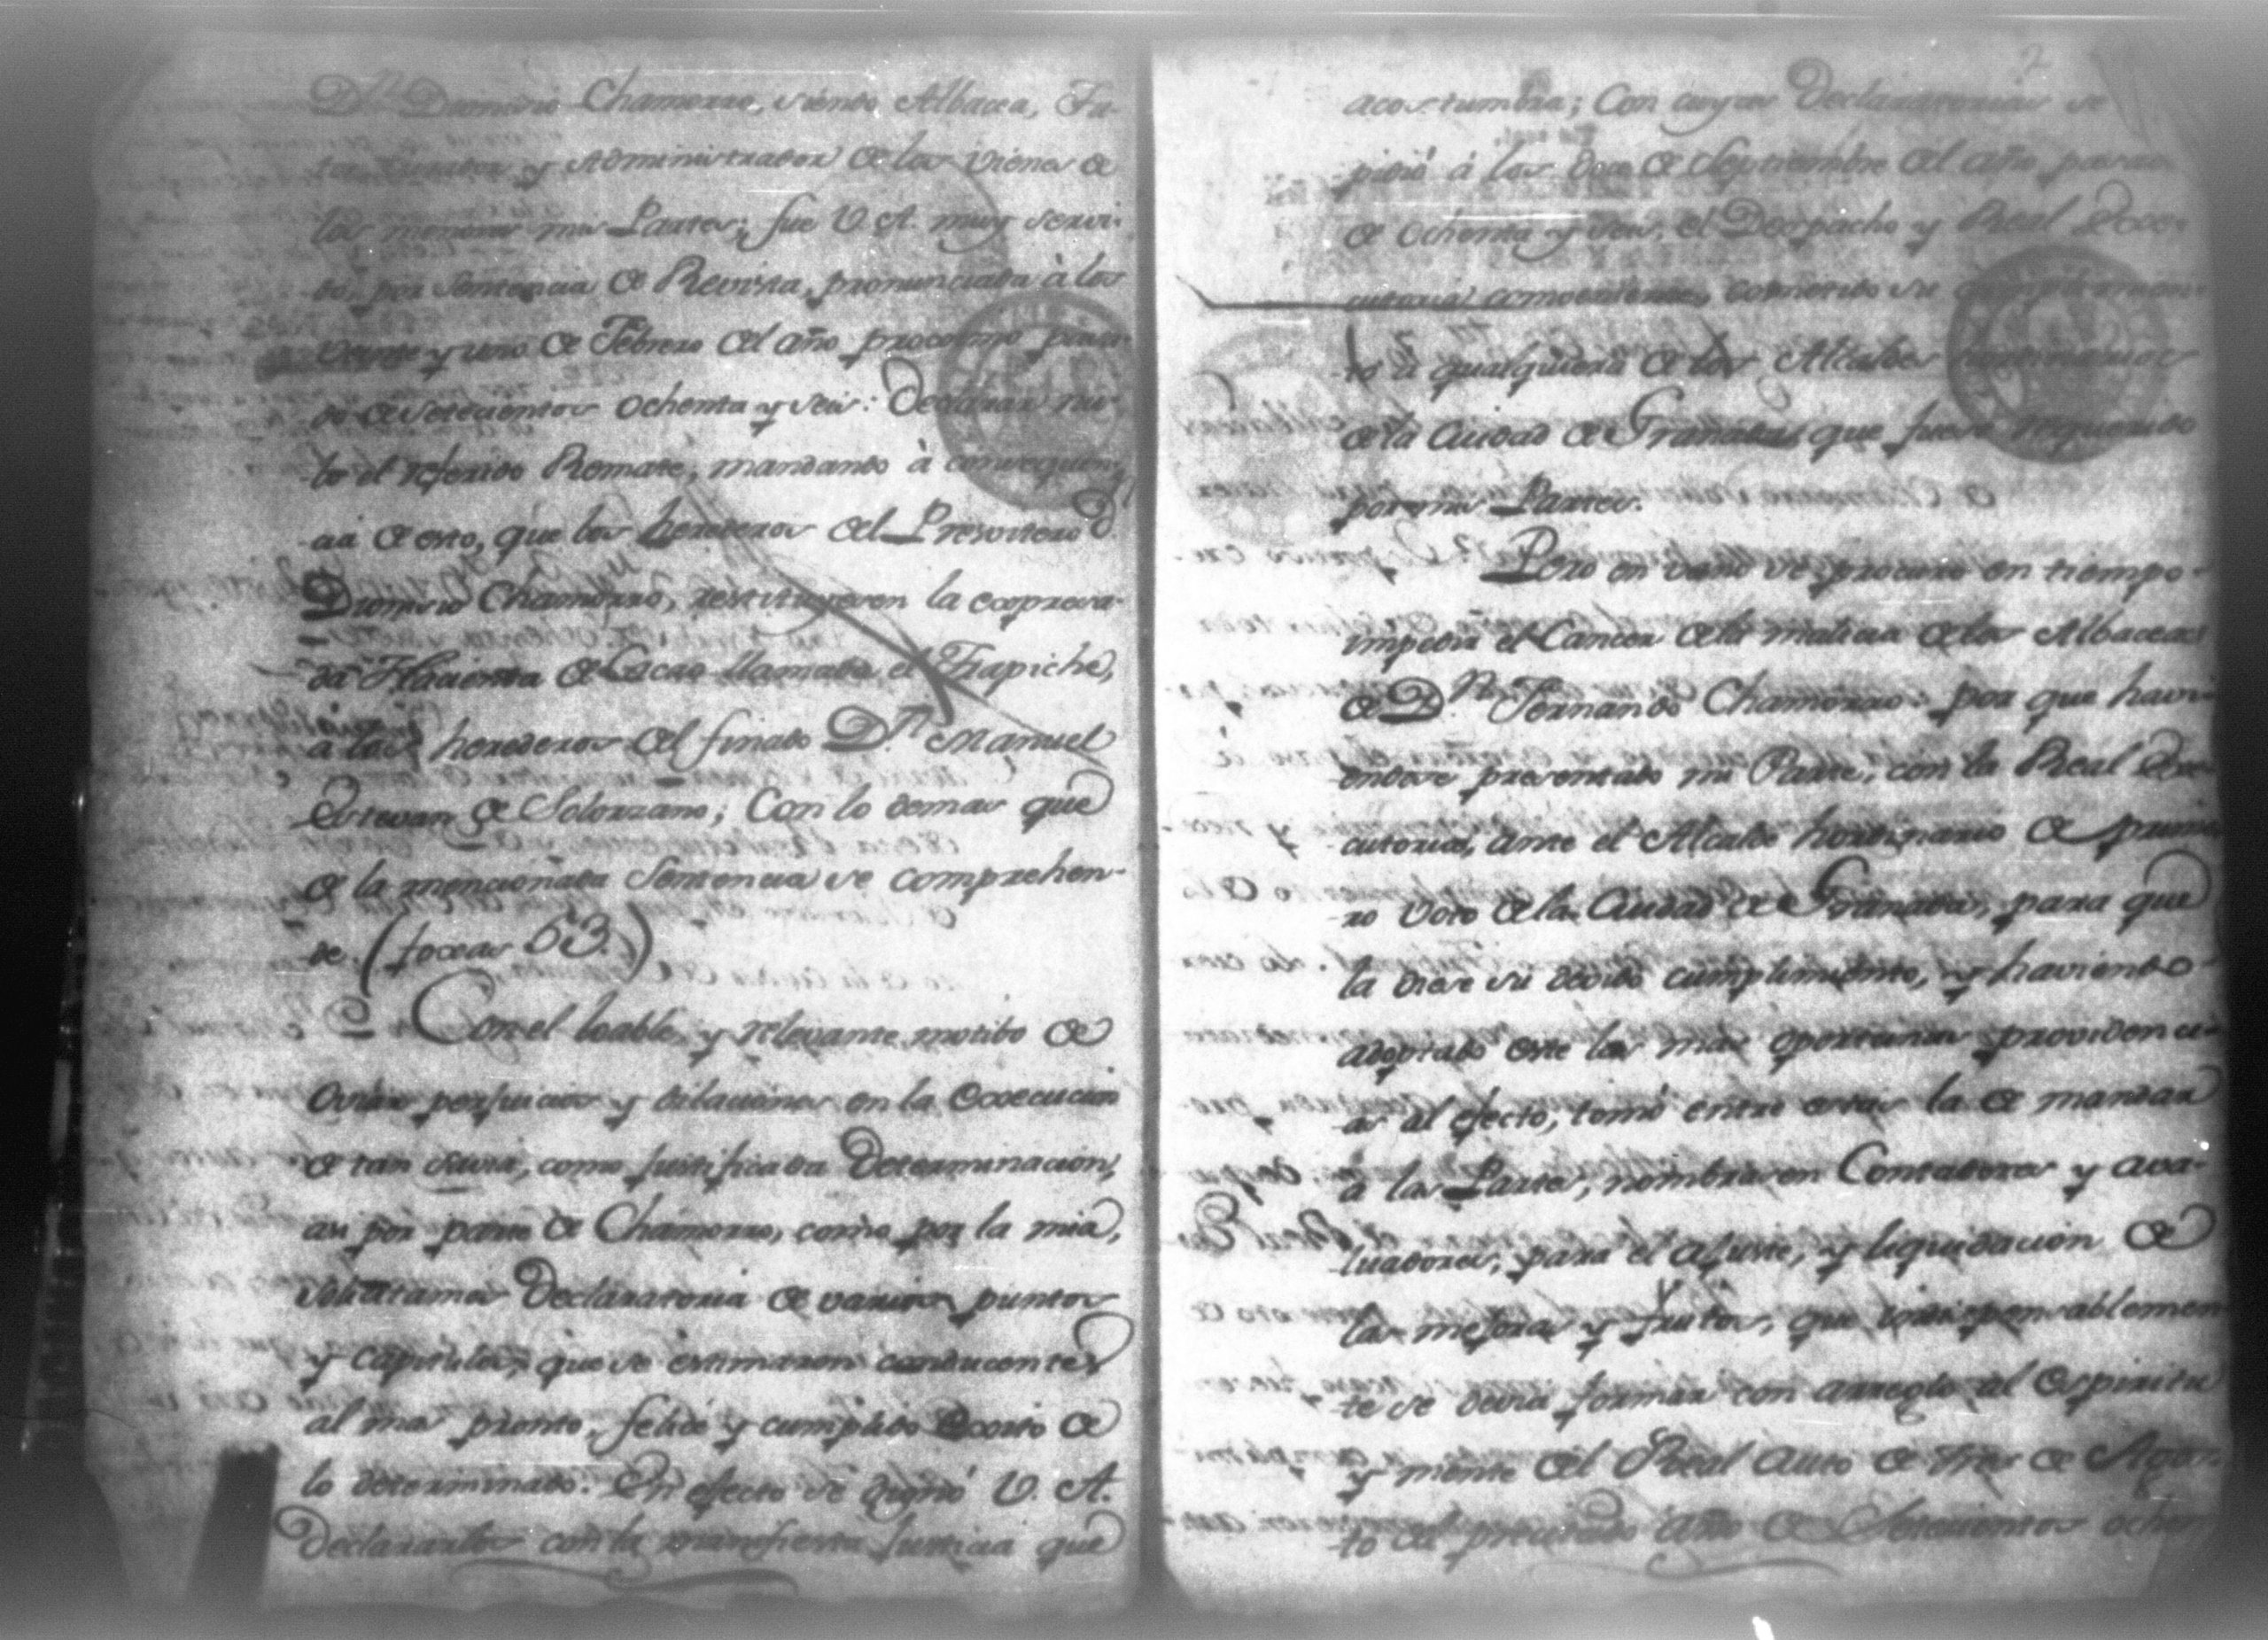 Dn. Dionisio Chamorro, siendo Albacea, Tu-
tor Curador y Administrador de los vienes de
los menores mis Partes; fue V. A. muy servi-
do, por Sentencia de Revista, pronunciada à los
veinte y uno de Febrero del año proccimo pasa-
do de setecientos ochenta y seis: Declarar nu-
lo el referido Remate, mandando à consequen-
cia de esto, que los herederos del Presvitero D.
Dionisio Chamorro, restituyesen la expresa-
da Hacienda de Cacao llamada el Trapiche,
à los herederos del finado Dn. Manuel
Estevan de Solorzano; Con lo demas que
de la mencionada Sentencia se comprehen-
de. (foxas 53.)
Con el loable, y relevante motibo de
oviar perjuicios y dilaciones en la Execucion
de tan savia, como justificada Determinacion,
asi por parte de Chamorro, como por la mia,
solicitamos Declaratoria de varios puntos
y capitulos, que se estimaron conducentes
al mas pronto, felice y cumplido Exsito de
lo determinado. En efecto se dignó V. A.
Declararlos con la manifiesta Justicia que
2
acostumbra; Con cuyas Declaratorias se
pidió á los doce de Septiembre del año pasado
de ochenta y seis, el Despacho y Real Exe-
cutoria comveniente, cometido su cumplimien-
to à qualquiera de los Alcaldes hordinarios
de la Ciudad de Granada que fuese requerido
por mis Partes.
Pero en vano se procura en tiempo
impedir el Cancer de la malicia de los Albaceas
de Dn. Fernando Chamorro: por que havi-
endose presentado mi Parte, con la Real Exe-
cutoria, ante el Alcalde hordinario de prime-
ro voto de la Ciudad de Granada, para que
la diese su devido cumplimiento, y haviendo
adoptado este las mas oportunas providenci-
as al efecto, tomó entre estas la de mandar
à las Partes, nombrasen Contadores y ava-
luadores, para el ajuste, y liquidacion de
las mejoras y frutos, que indispensablemen-
te se devia formar con arreglo al espiritu
y mente del Real Auto de tres de Agos-
to del precitado año de Setecientos ochen